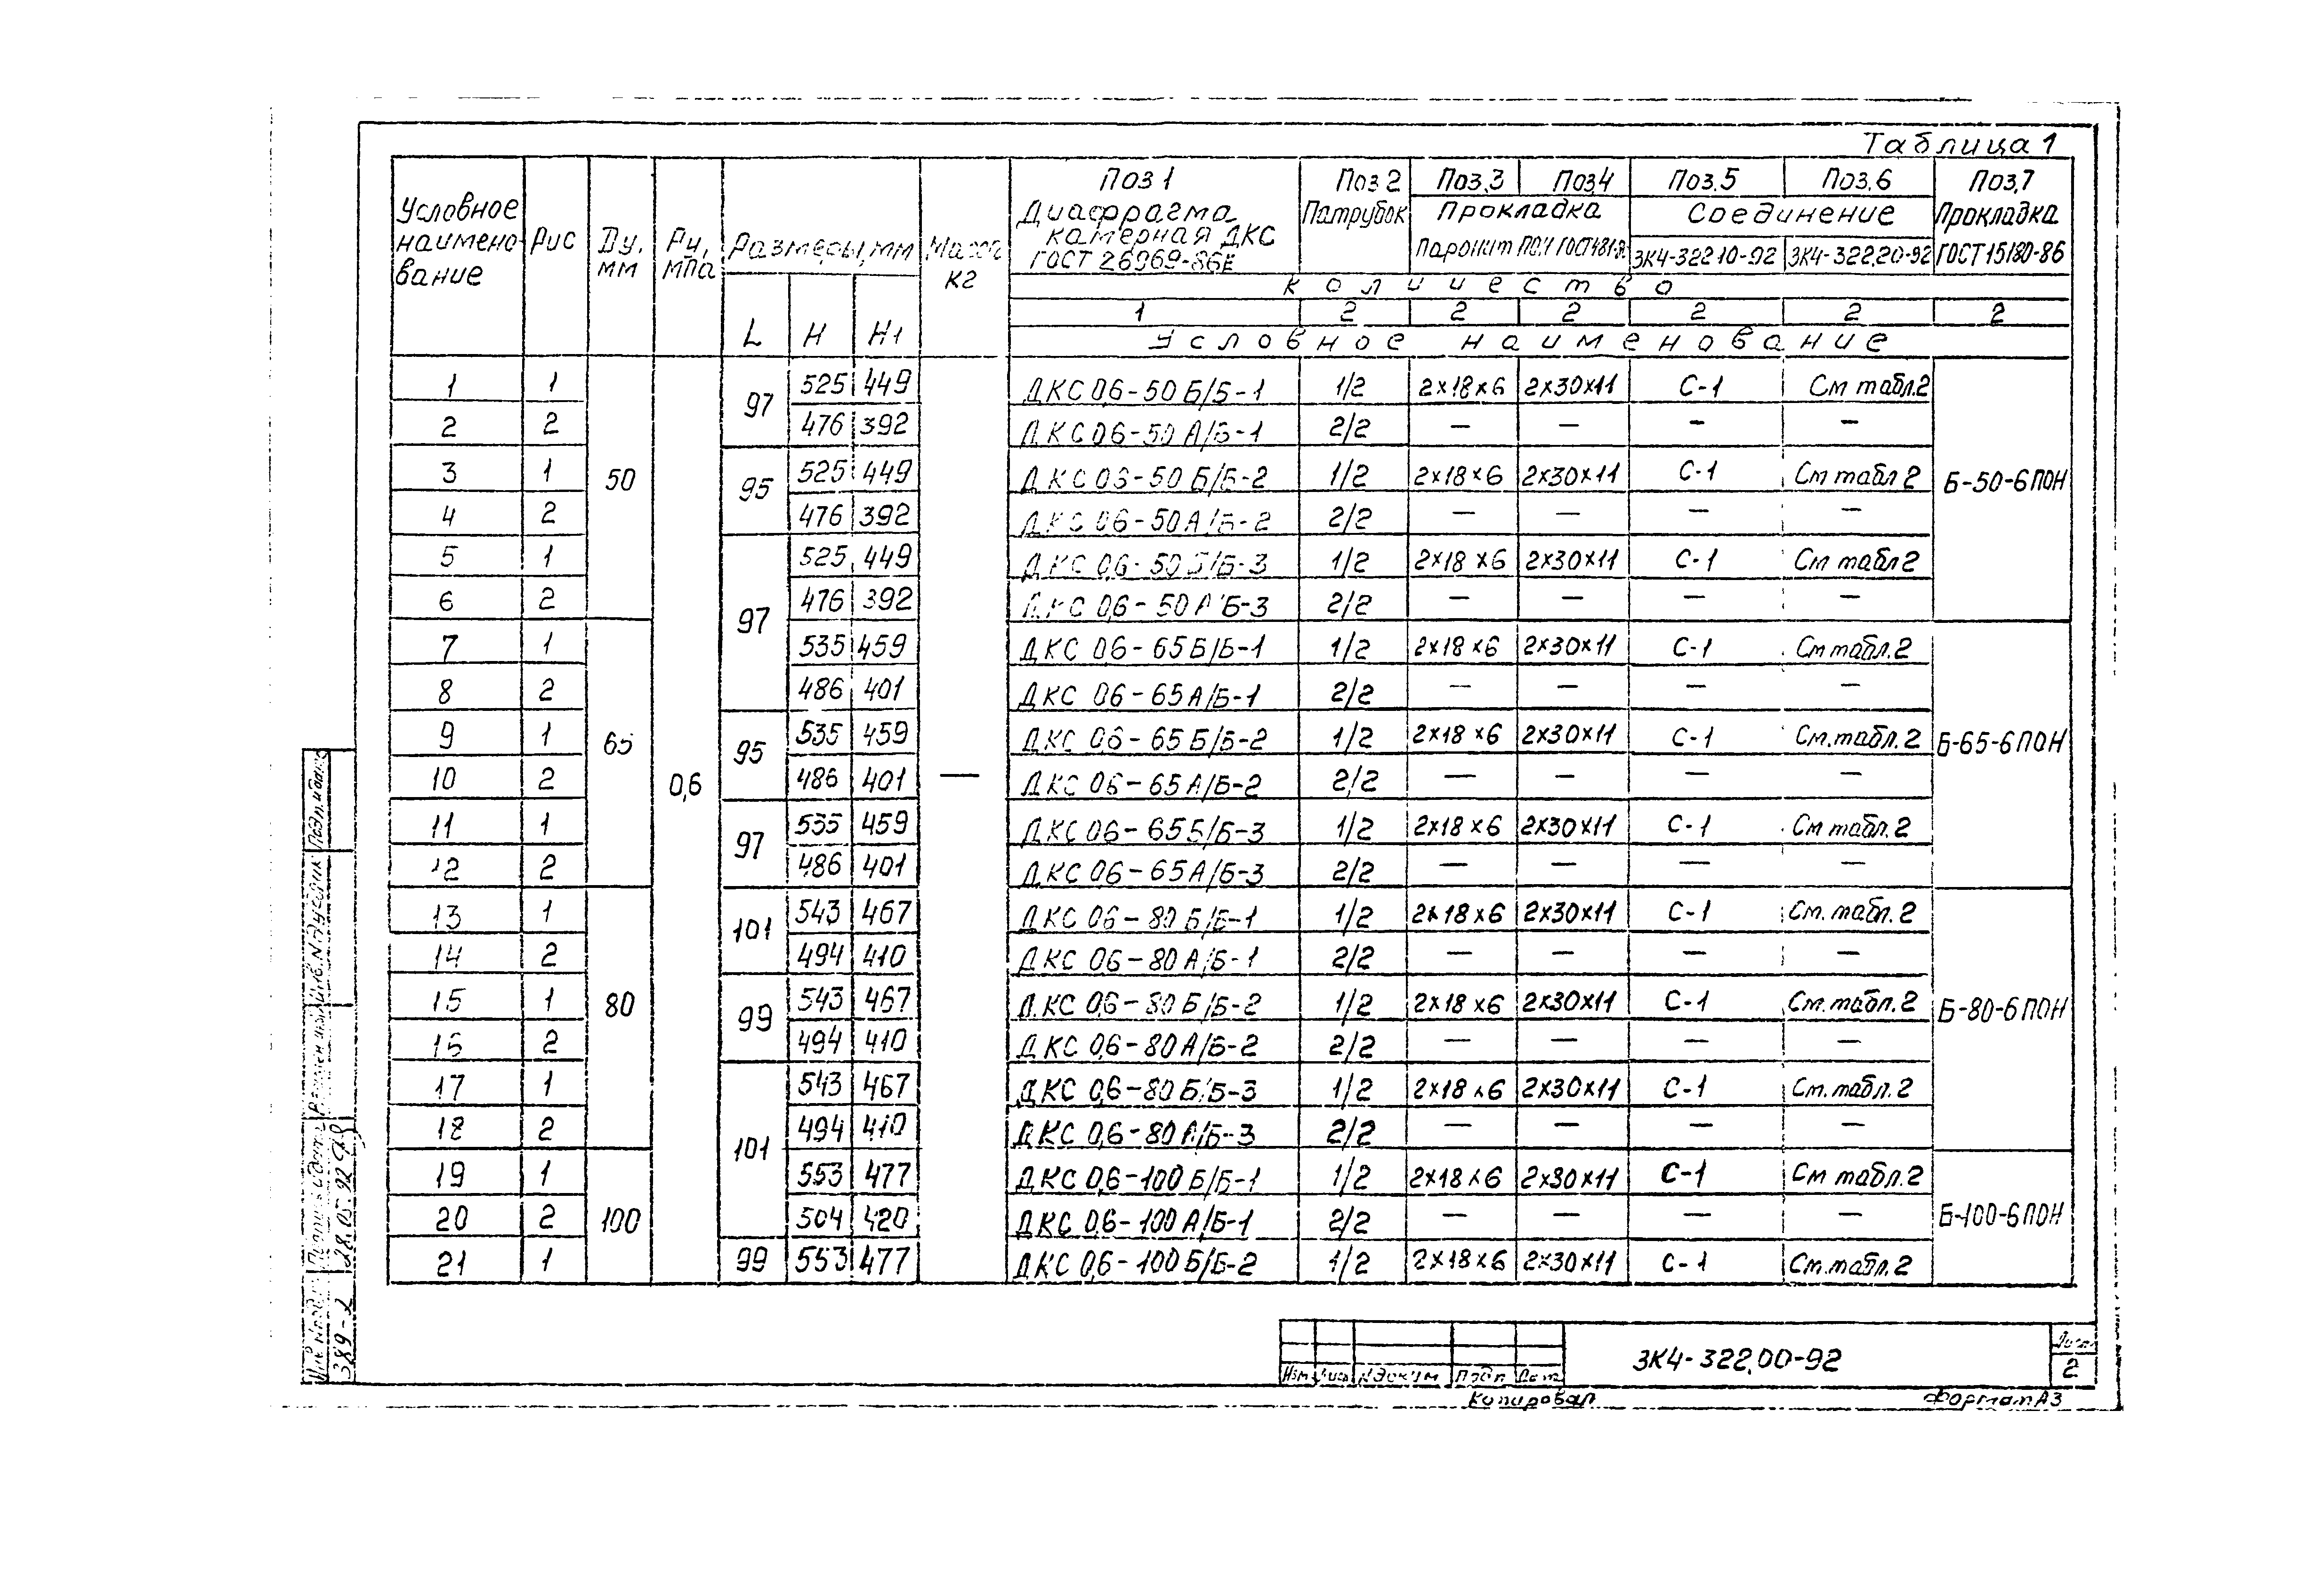 Таблица 1
Условное наимено- вание
Рис
Ду, мм
Ру, мпа
Размеры, мм
L H H1
Масса кг
Поз 1 Поз 2 Поз.3 Поз4 Поз.5 Поз.6 Поз.7
Диафрагма камерная ДКС ГОСТ 26969-86Е
Патрубок
Прокладка
Паронит ПОН ГОСТ481-80
Соединение
ЗК4-322 10-92 ЗК4-322.20-92
Прокладка ГОСТ 15180-86
количество
1 2 2 2 2 2 2
Условное наименование
1 1 50 0,6 97 525 449 — ДКС 0,6-50 Б/Б-1 1/2 2×18×6 2×30×11 С-1 См табл.2 Б-50-6ПОН
2 2 476 392 ДКС 0,6-50 А/Б-1 2/2 — — — —
3 1 95 525 449 ДКС 06-50 Б/Б-2 1/2 2×18×6 2×30×11 С-1 См табл 2
4 2 476 392 ДКС 06-50А/Б-2 2/2 — — — —
5 1 97 525 449 ДКС 0,6-50Б/Б-3 1/2 2×18×6 2×30×11 С-1 См табл 2
6 2 476 392 ДКС 0,6-50А/Б-3 2/2 — — — —
7 1 65 535 459 ДКС 0,6-65Б/Б-1 1/2 2×18×6 2×30×11 С-1 См табл.2 Б-65-6ПОН
8 2 486 401 ДКС 06-65А/Б-1 2/2 — — — —
9 1 95 535 459 ДКС 0,6-65 Б/Б-2 1/2 2×18×6 2×30×11 С-1 См.табл.2
10 2 486 401 ДКС 06-65А/Б-2 2/2 — — — —
11 1 97 535 459 ДКС 06-65Б/Б-3 1/2 2×18×6 2×30×11 С-1 См табл.2
12 2 486 401 ДКС 0,6-65А/Б-3 2/2 — — — —
13 1 80 101 543 467 ДКС 06-80 Б/Б-1 1/2 2×18×6 2×30×11 С-1 См. табл.2 Б-80-6ПОН
14 2 494 410 ДКС 06-80 А/Б-1 2/2 — — — —
15 1 99 543 467 ДКС 0,6-80 Б/Б-2 1/2 2×18×6 2×30×11 С-1 См.табл.2
16 2 494 410 ДКС 0,6-80А/Б-2 2/2 — — — —
17 1 101 543 467 ДКС 0,6-80 Б/Б-3 1/2 2×18×6 2×30×11 С-1 См.табл.2
18 2 494 410 ДКС 0,6-80А/Б-3 2/2 — — — —
19 1 100 553 477 ДКС 0,6-100 Б/Б-1 1/2 2×18×6 2×30×11 С-1 См табл.2 Б-100-6ПОН
20 2 504 420 ДКС 0,6-100А/Б-1 2/2 — — — —
21 1 99 553 477 ДКС 0,6-100 Б/Б-2 1/2 2×18×6 2×30×11 С-1 См.табл.2
Подп. и дата
389-2
28.05.92
Изм Лист № докум Подп Дат
ЗК4-322.00-92
Лист
2
Копировал
Формат А3